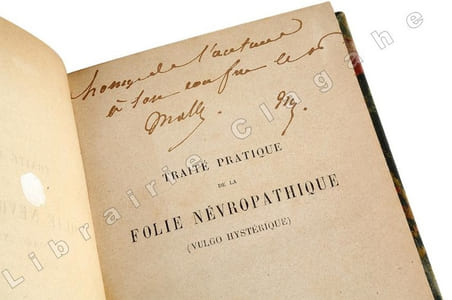 hommage de l'auteur
à son confrère le dr
TRAITÉ PRATIQUE
DE LA
FOLIE NÉVROPATHIQUE
(VULGO HYSTÉRIQUE)
Librairie Clagahe